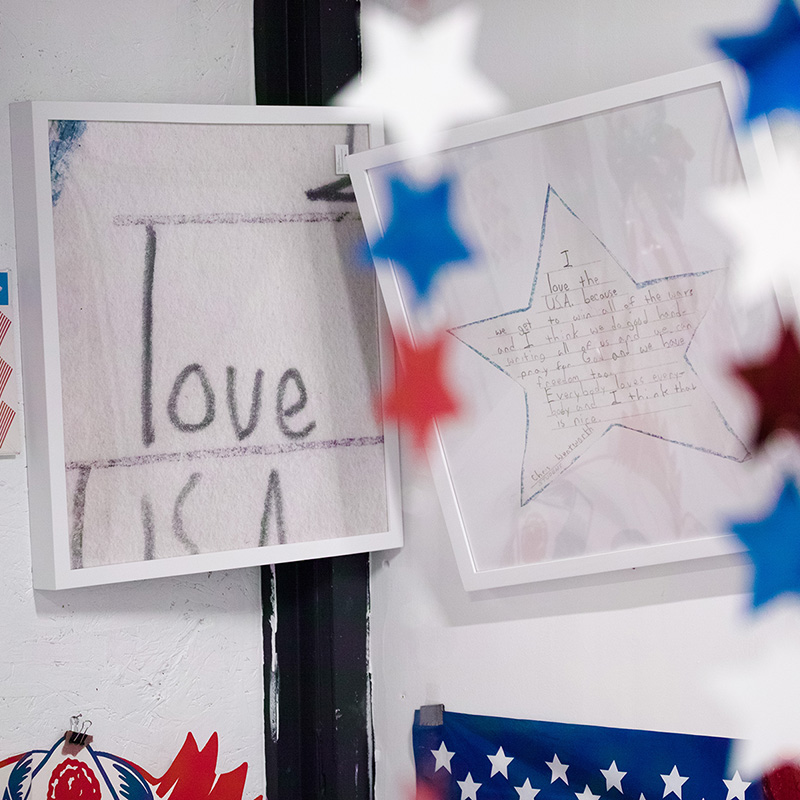 love
USA
I
love the
USA because
we get to win all of the wars
and I think we do good hand-
writing all of us and we can
pray for God and we have
freedom too.
Everybody loves every-
body and I think that
is nice.
Wentworth